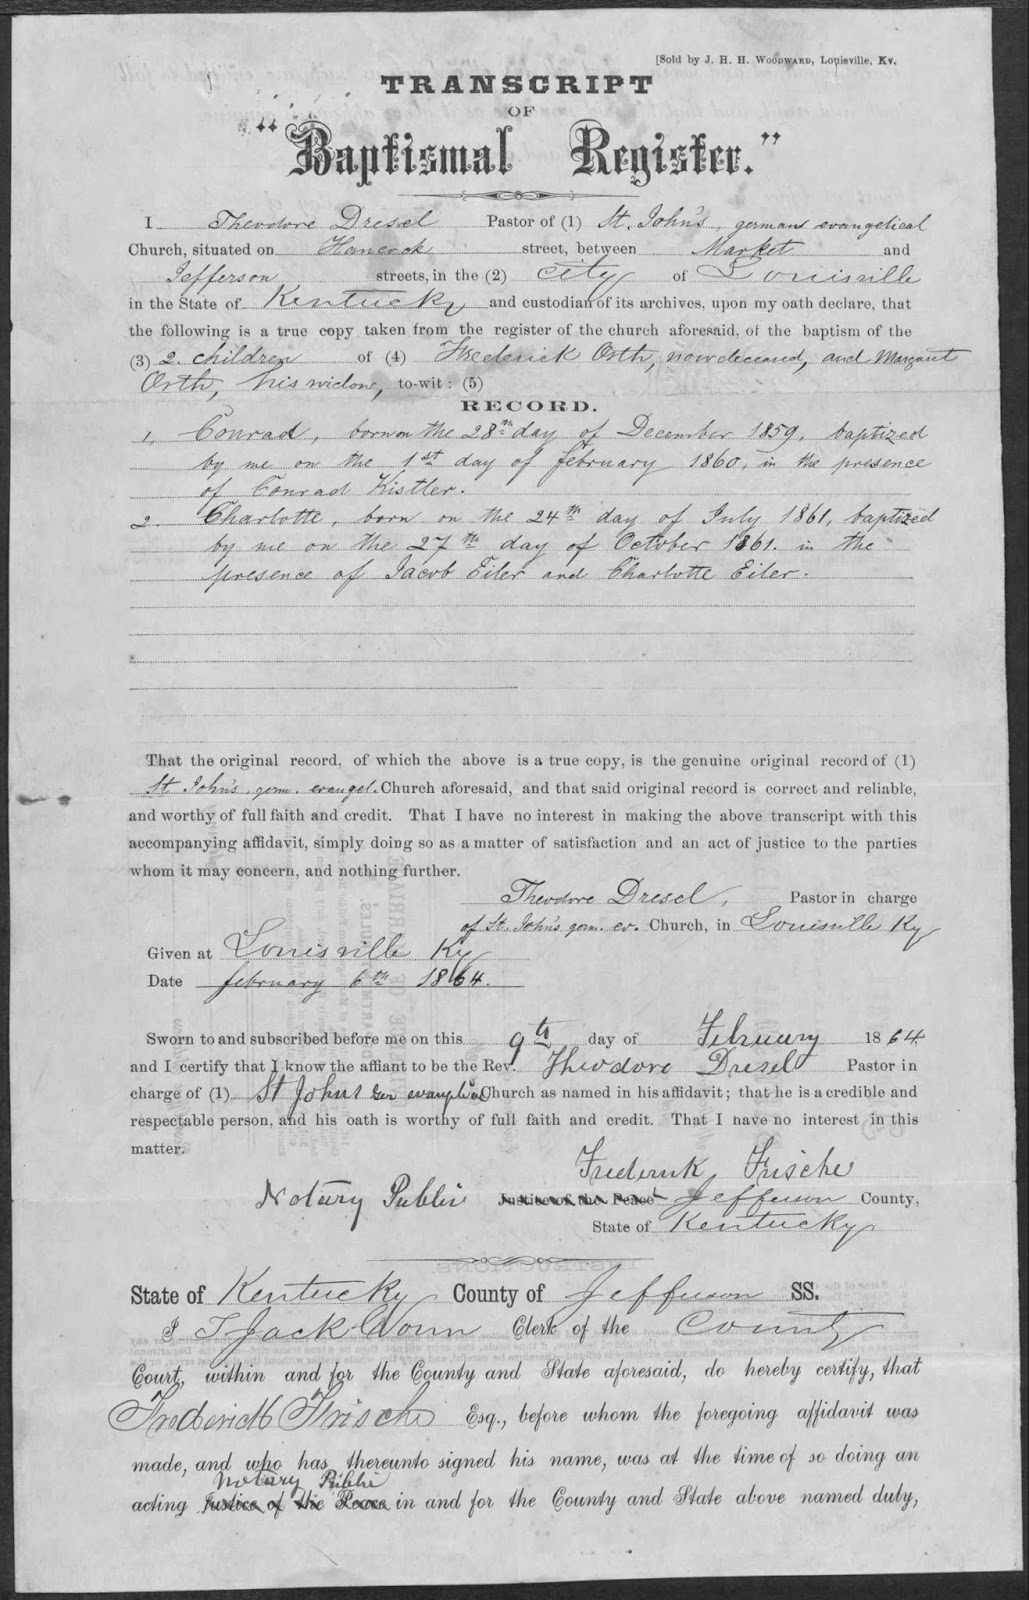 [Sold by J. H. H. WOODWARD, Louisville, Ky.
TRANSCRIPT
OF
"Baptismal Register."
I Theodore Dresel Pastor of (1) St. John's, german evangelical
Church, situated on Hancock street, between Market and
Jefferson streets, in the (2) city of Louisville
in the State of Kentucky and custodian of its archives, upon my oath declare, that
the following is a true copy taken from the register of the church aforesaid, of the baptism of the
(3) 2. children of (4) Frederick Orth, now deceased, and Margaret
Orth, his widow, to-wit: (5)
RECORD.
1, Conrad, born on the 28th day of December 1859, baptized
by me on the 1st day of february 1860, in the presence
of Conrad Kistler.
2. Charlotte, born on the 24th day of July 1861, baptized
by me on the 27th day of October 1861. in the
presence of Jacob Eiler and Charlotte Eiler.
That the original record, of which the above is a true copy, is the genuine original record of (1)
St John's germ. evangel. Church aforesaid, and that said original record is correct and reliable,
and worthy of full faith and credit. That I have no interest in making the above transcript with this
accompanying affidavit, simply doing so as a matter of satisfaction and an act of justice to the parties
whom it may concern, and nothing further.
Theodore Dresel, Pastor in charge
of St. John's germ. ev. Church, in Louisville Ky
Given at Louisville Ky
Date february 6th 1864.
Sworn to and subscribed before me on this 9th day of February 1864
and I certify that I know the affiant to be the Rev. Theodore Dresel Pastor in
charge of (1) St Johns Church as named in his affidavit; that he is a credible and
respectable person, and his oath is worthy of full faith and credit. That I have no interest in this
matter.
Frederick Frische
Notary Public Justice of the Peace Jefferson County,
State of Kentucky
State of Kentucky County of Jefferson SS.
I Jack Clerk of the County
Court, within and for the County and State aforesaid, do hereby certify, that
Frederick Frische Esq., before whom the foregoing affidavit was
made, and who has thereunto signed his name, was at the time of so doing an
Notary Public
acting Justice of the Peace in and for the County and State above named duly,